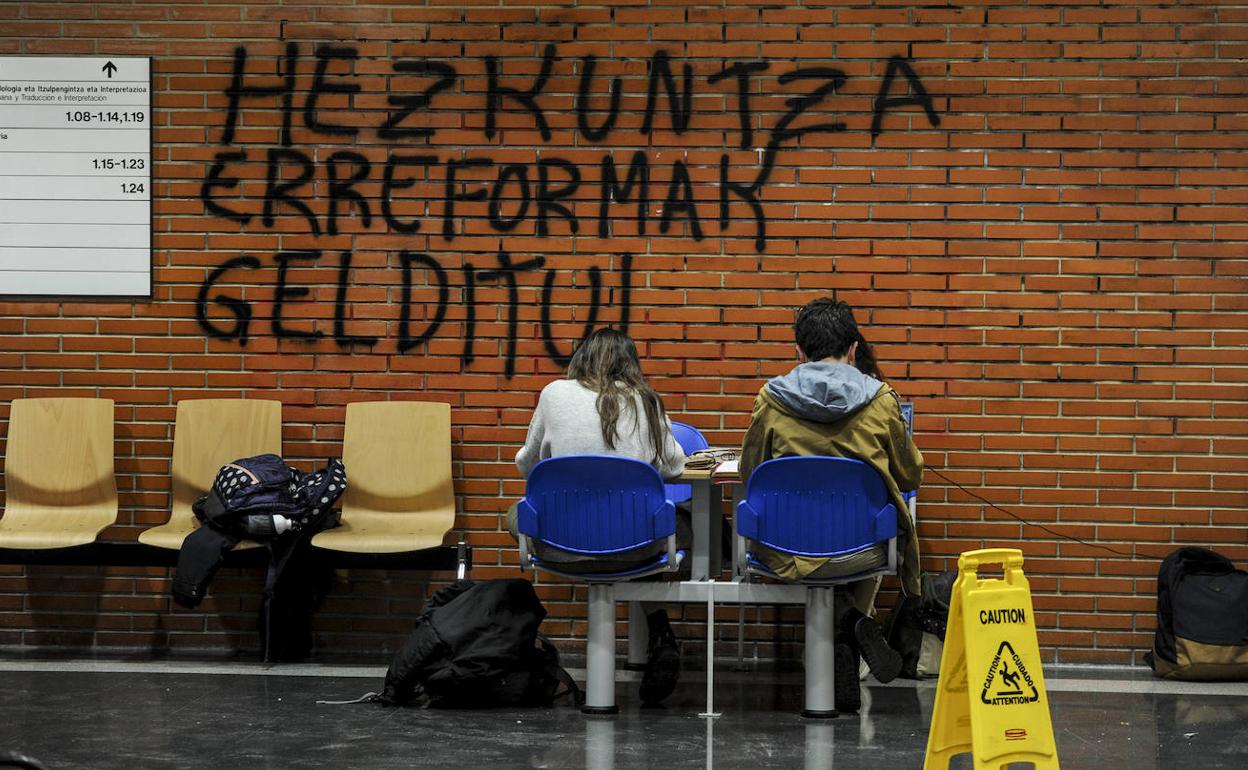 HEZKUNTZA
ERREFORMAK
GELDITU!
ologia eta Itzulpengintza eta Interpretazioa
ana y Traducción e Interpretación
1.08-1.14,1.19
ria
1.15-1.23
1.24
CAUTION
CAUTION
CUIDADO
ATTENTION